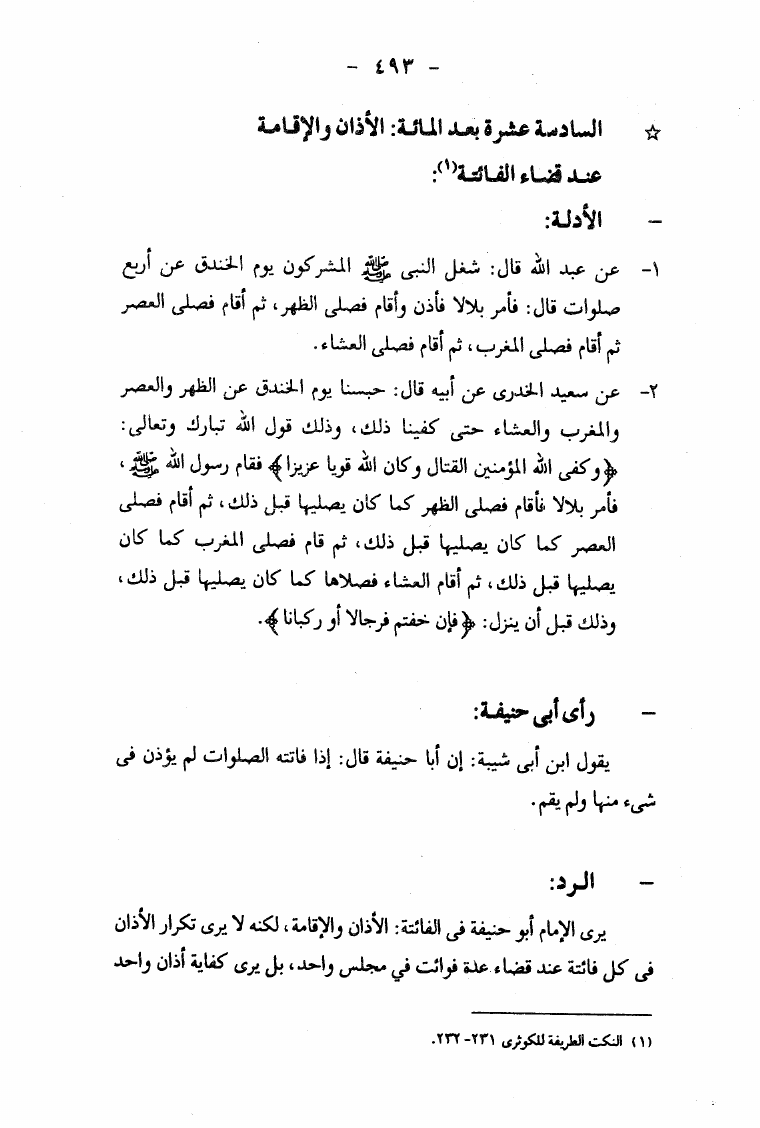 - ٤٩٣ -
☆ السادسة عشرة بعد المائة: الأذان والإقامة
عند قضاء الفائتة(١):
- الأدلة:
١- عن عبد الله قال: شغل النبى ﷺ المشركون يوم الخندق عن أربع
صلوات قال: فأمر بلالا فأذن وأقام فصلى الظهر، ثم أقام فصلى العصر
ثم أقام فصلى المغرب، ثم أقام فصلى العشاء.
٢- عن سعيد الخدرى عن أبيه قال: حبسنا يوم الخندق عن الظهر والعصر
والمغرب والعشاء حتى كفينا ذلك، وذلك قول الله تبارك وتعالى:
﴿وكفى الله المؤمنين القتال وكان الله قويا عزيزا﴾ فقام رسول الله ﷺ،
فأمر بلالا فأقام فصلى الظهر كما كان يصليها قبل ذلك، ثم أقام فصلى
العصر كما كان يصليها قبل ذلك، ثم قام فصلى المغرب كما كان
يصليها قبل ذلك، ثم أقام العشاء فصلاها كما كان يصليها قبل ذلك،
وذلك قبل أن ينزل: ﴿فإن خفتم فرجالا أو ركبانا﴾.
- رأى أبى حنيفة:
يقول ابن أبى شيبة: إن أبا حنيفة قال: إذا فاتته الصلوات لم يؤذن فى
شىء منها ولم يقم.
- الرد:
يرى الإمام أبو حنيفة فى الفائتة: الأذان والإقامة، لكنه لا يرى تكرار الأذان
فى كل فائتة عند قضاء عدة فوائت في مجلس واحد، بل يرى كفاية أذان واحد
(١) النكت الطريفة للكوثرى ٢٣١-٢٣٢.